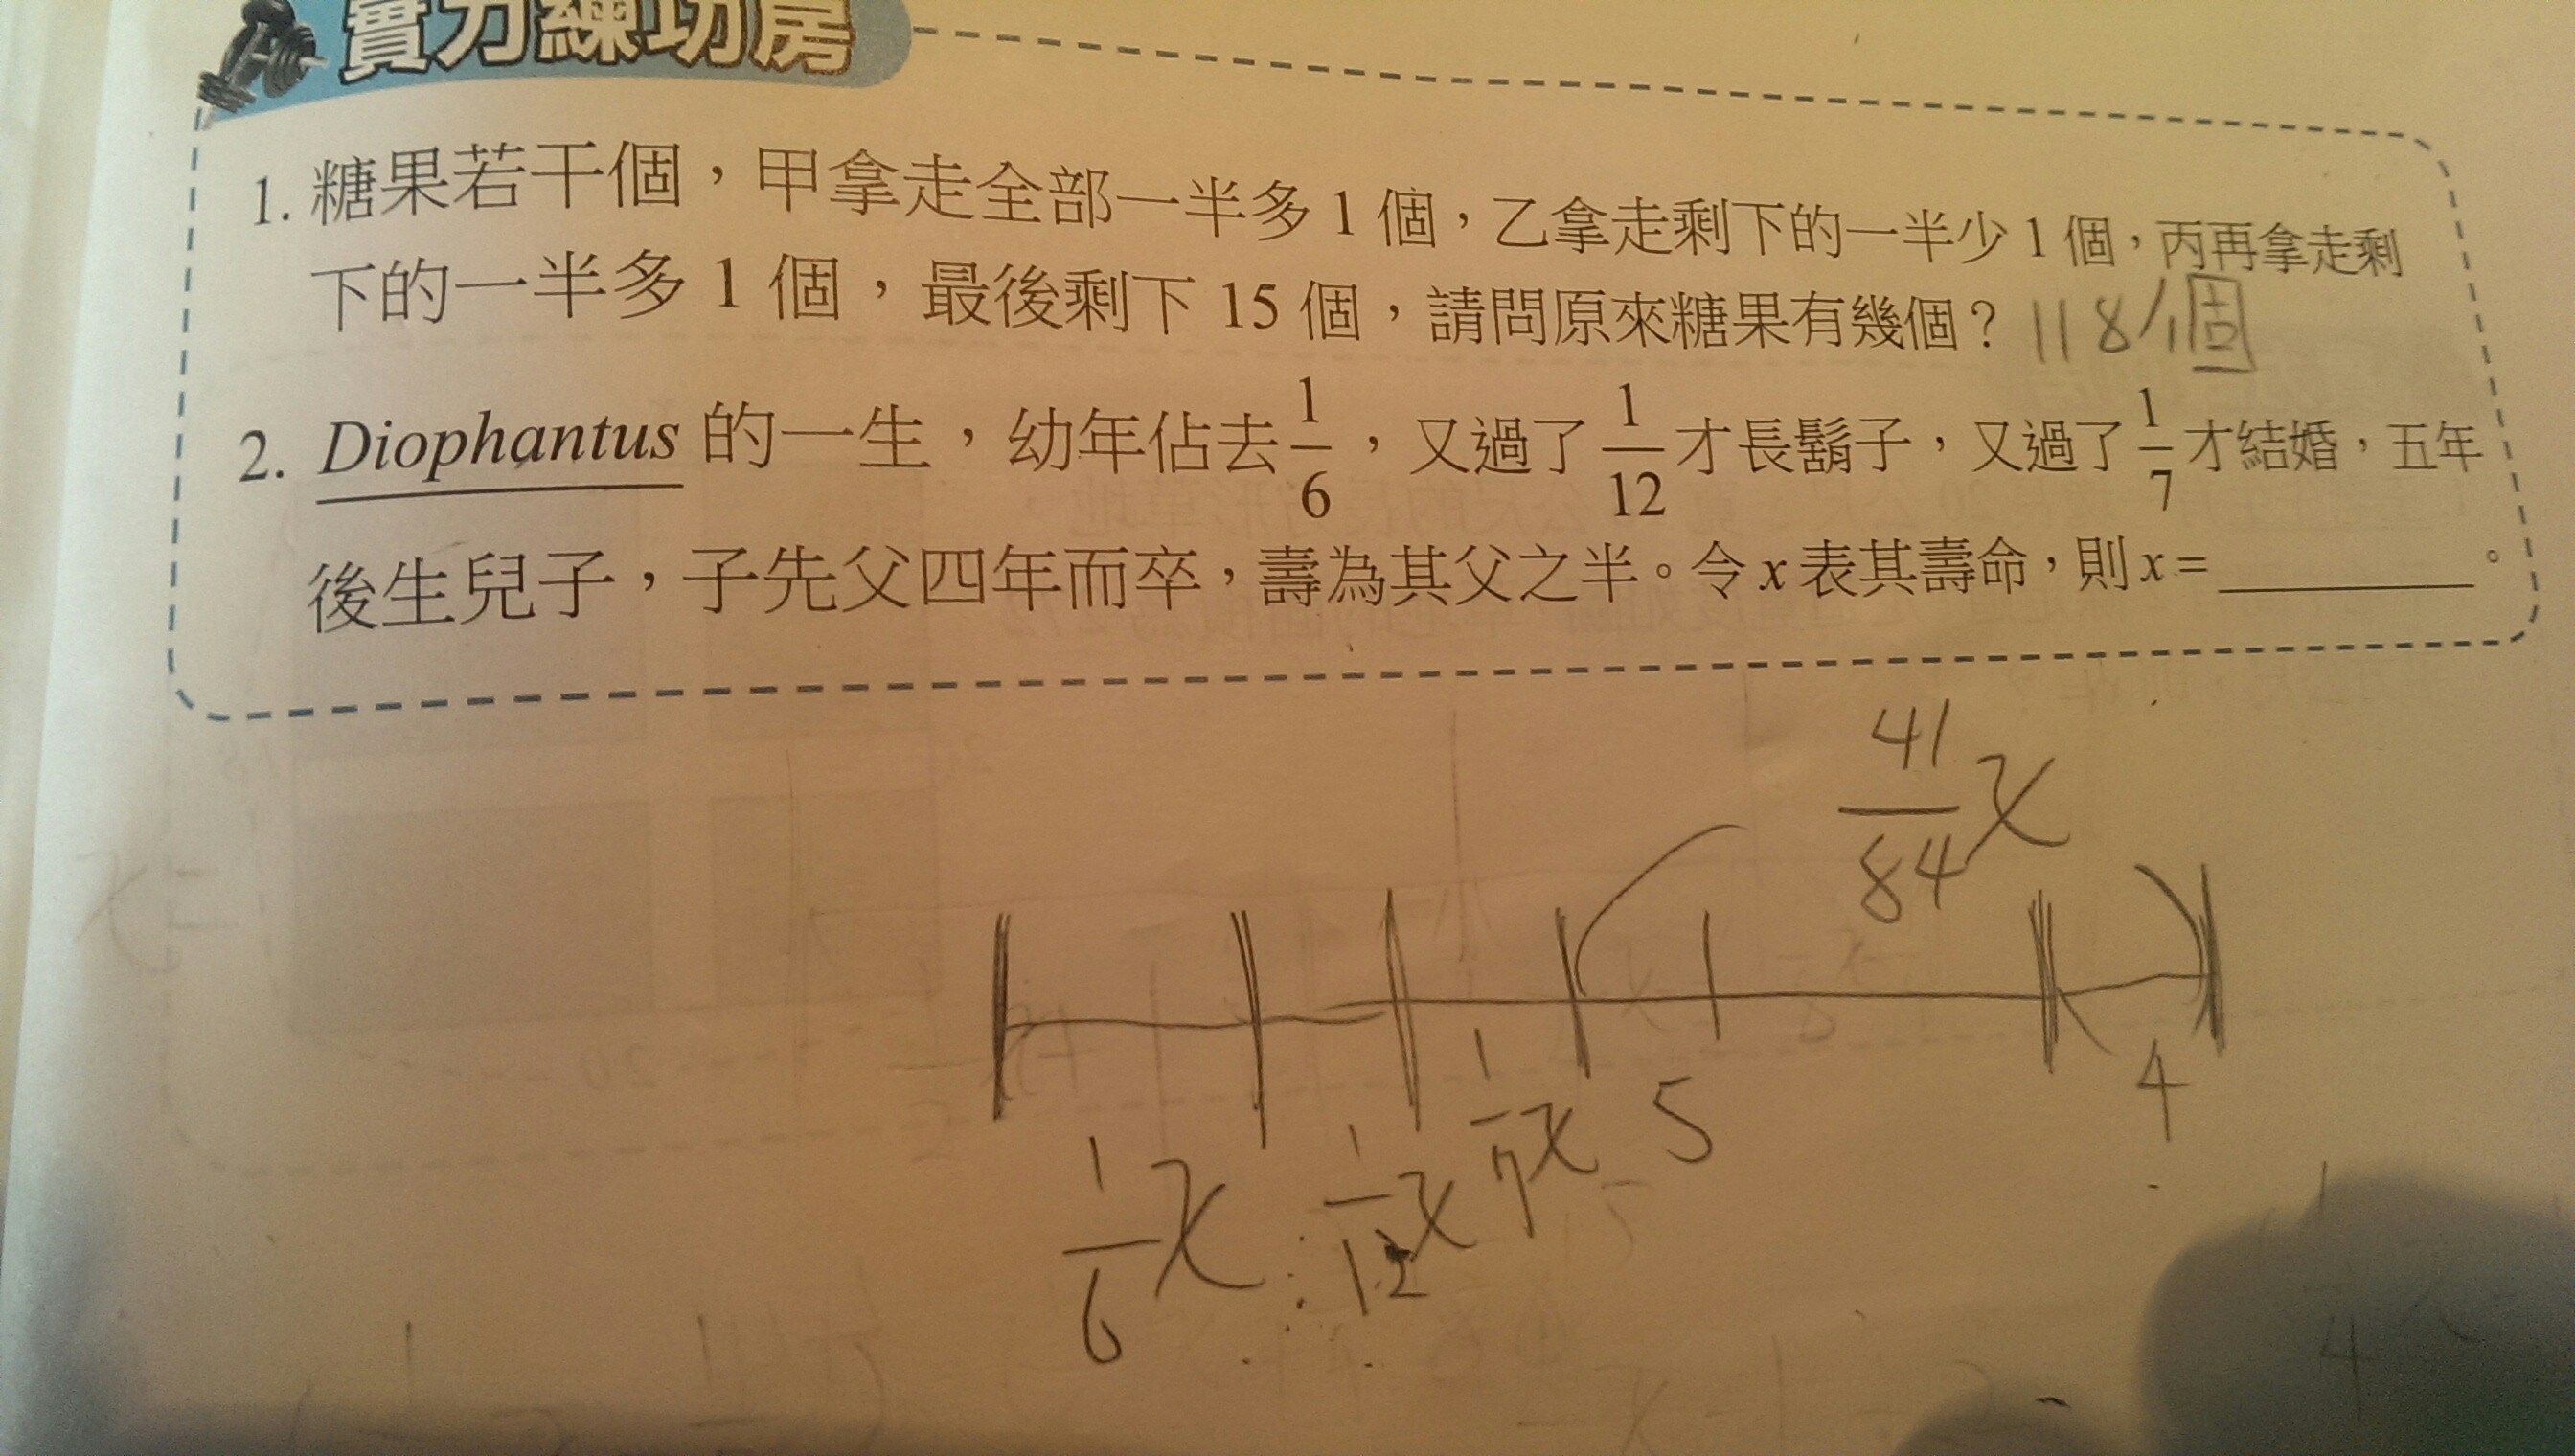 實力練功房
1. 糖果若干個，甲拿走全部一半多 1 個，乙拿走剩下的一半少 1 個，丙再拿走剩
下的一半多 1 個，最後剩下 15 個，請問原來糖果有幾個？ 118個
2. Diophantus 的一生，幼年佔去 1/6，又過了 1/12 才長鬍子，又過了 1/7 才結婚，五年
後生兒子，子先父四年而卒，壽為其父之半。令 x 表其壽命，則 x = ________。
41/84 x
1/6 x 1/12 x 1/7 x 5 4